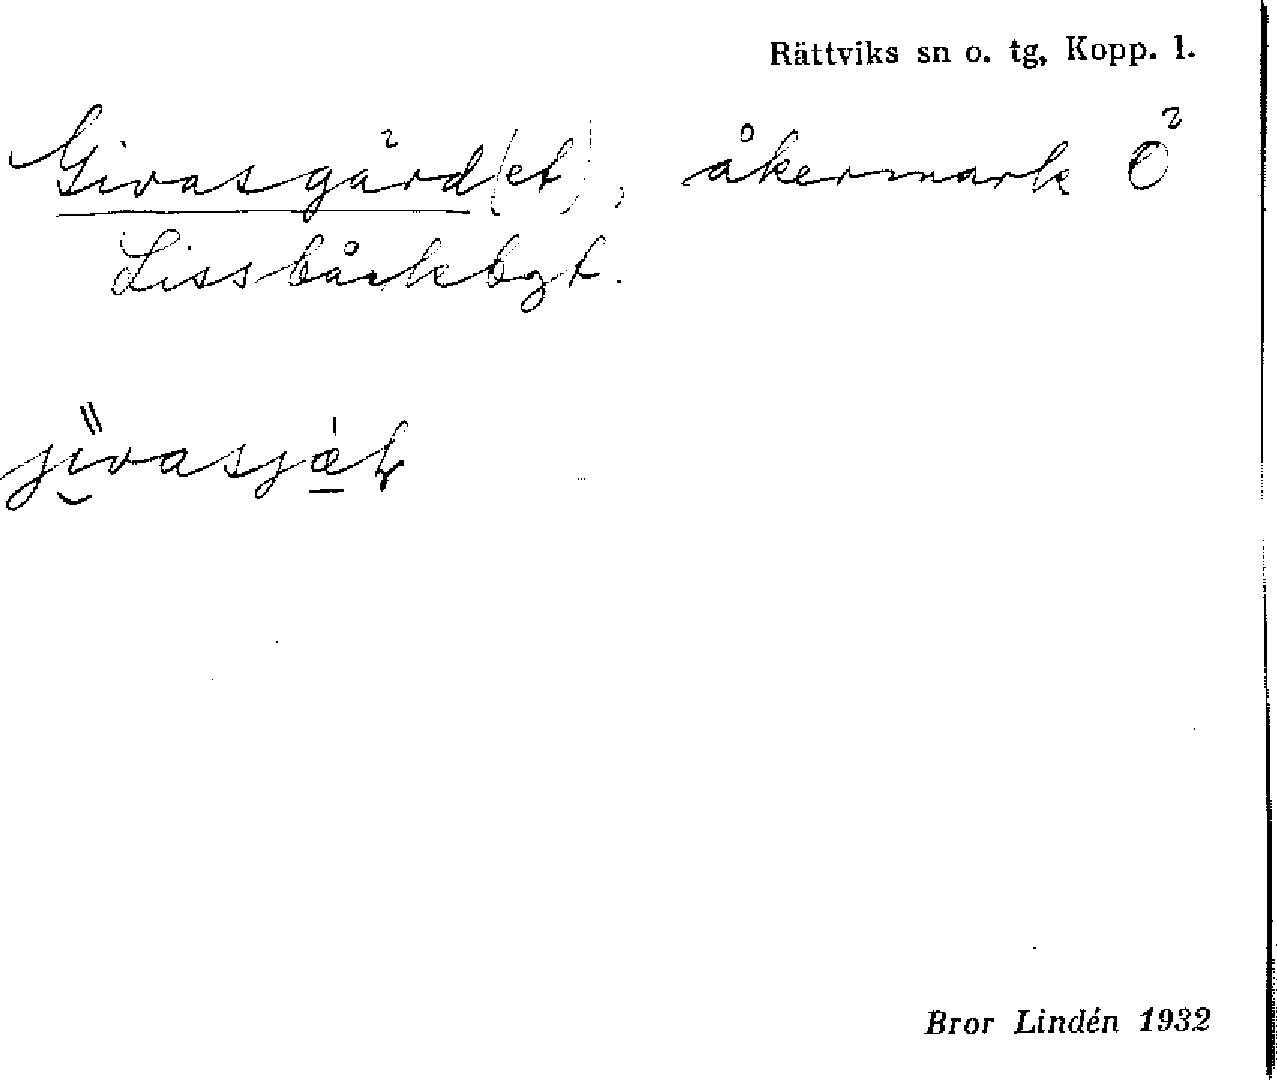 Rättviks sn o. tg, Kopp. l.
Givasgärd(et), åkermark Ö
Lissbåckbgt.
Bror Lindén 1932